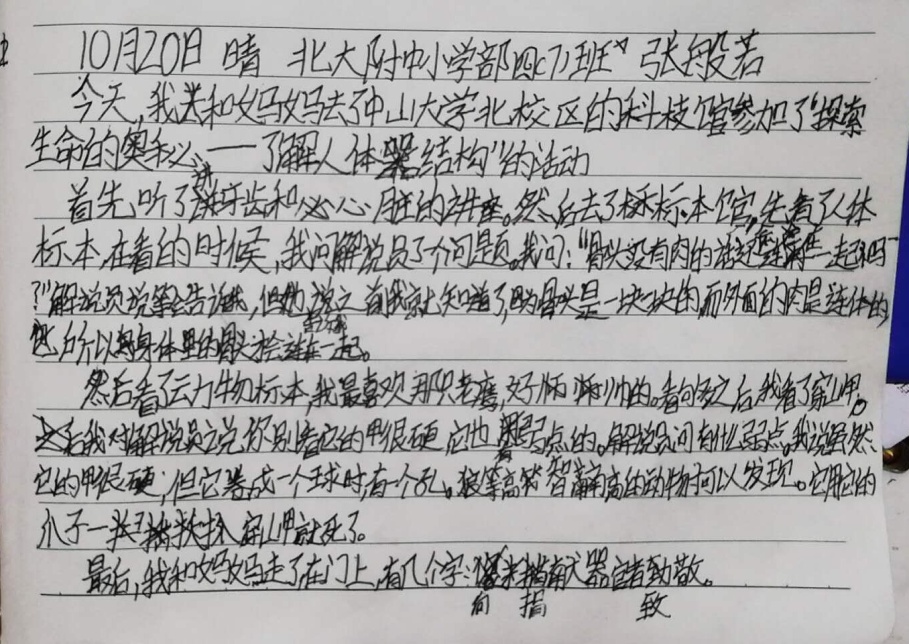 10月20日 晴 北大附中小学部四(7)班 张般若
今天,我和妈妈去了中山大学北校区的科技馆参加了"探索
生命的奥秘、——了解人体器结构"的活动
首先,听了讲牙齿和心脏的讲座。然后去了标本馆,先看了人体
标本,在看的时候,我问解说员了个问题。我问:"骨头没有肉的话还连在一起吗
?"解说员说等会告诉我,但他说之前我就知道了,因为骨头是一块块的,而外面的肉是连体的
所以身体里的骨头才会连在一起。
然后看了动物标本,我最喜欢那只老鹰,好帅帅帅的。看之后,我看了穿山甲。
之后我对解说员说你别看它的甲很硬,它也有弱点的。解说员问有什么弱点。我说虽然
它的甲很硬,但它卷成一个球时有一个孔。狼等高智商的动物可以发现。它用它的
爪子一穿山甲就死了。
最后,我和妈妈走了在门上,有几个字:向捐献器官者致敬。
向 捐 致